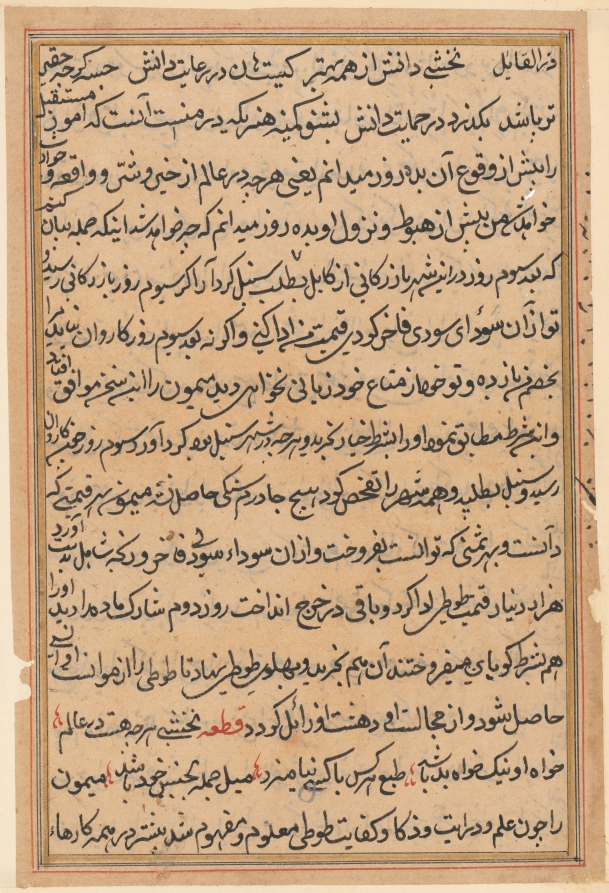 درالقایل نخشبی دانش از همه بهتر کیست ان در رعایت دانش خسه کرچه حقیر
تر باشد نکذرد در حمایت دانش بشنو کمینه هنریکه در منست آنست که امور مستقبل
را بیش از وقوع آن بده روز میدانم یعنی هرچه در عالم از خیر و شر و واقعه و حوادث
خواهد شد من بیش از هبوط و نزول او بده روز میدانم که چه خواهد شد اینکه جمله بیان کنیم
که بعد سیوم روز در این شهر بازرکانی از کابل بطلب سنبل کرد آید اکر سیوم روز بازرکانی رسید و
تو از آن سودای سودی فاخر کردی قیمت من ادا کنی و اکر نه بعد سیوم روز کاروان نیاید مرا
بخصم من باز ده و تو خود از متاع خود زیانی نخواهی دید میمون را این سخن موافق افتاد
و این شرط مطابق نمود او را بشرط خیار بخرید و هرچه در شهر سنبل بود کرد آورد سوم روز چون کاروان
رسید و سنبل بطلبید و همه شهر را تفحص کرد هیچ جا درم سنکی حاصل نشد میمون بهر قیمتی که
دانست و بهر ثمنی که توانست بفروخت و از ان سوداء سودی فاخر و ربحه شامل بدست آورد
هزار دینار قیمت طوطی ادا کرد و باقی در خرج انداخت روز دوم شارک ماده را دید او را
هم بشرط کویایی میفروختند آن هم بخرید و پهلوی طوطی نهاد تا طوطی را از موانست او انسی
حاصل شود و از مجالست او دهشت او زائل کردد قطعه نخشبی هرچه هست در عالم
خواه او نیک خواه بد باشد طبع هر کس باکسی نیامیزد میل جمله بجنس خود باشد میمون
را چون علم و درایت و ذکا و کفایت طوطی معلوم و مفهوم شد بیشتر در همه کارهاء